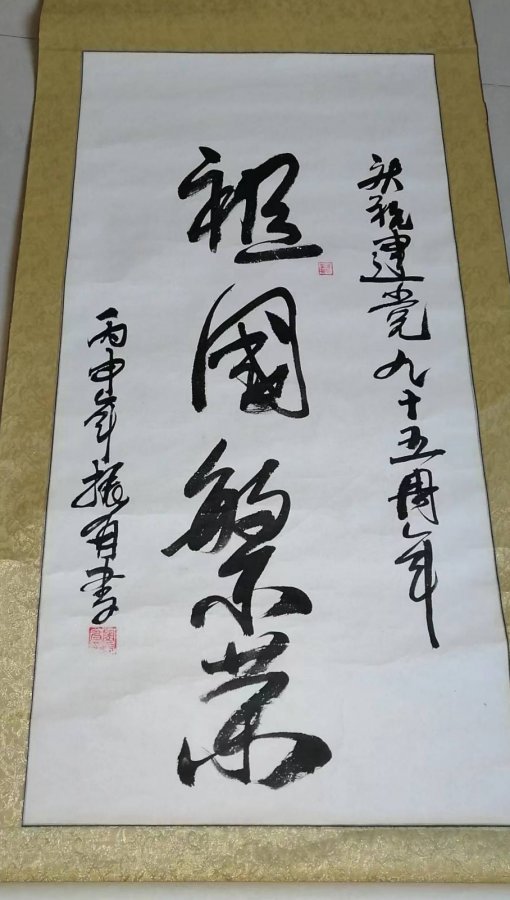 庆祝建党九十五周年
祖國繁荣
丙申年振有書